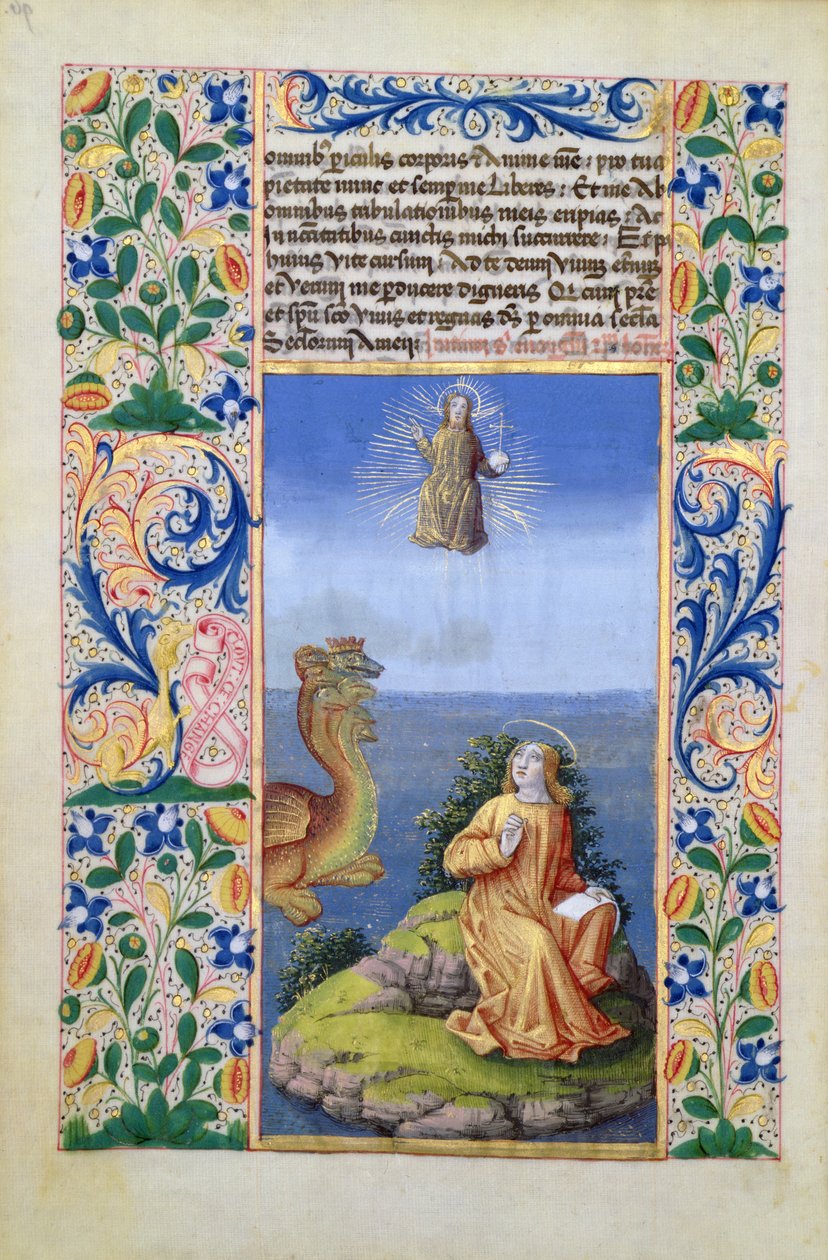 omnibꝰ periculis corporis & Anime mee : pro tua
pietate nunc et semp me Liberes : Et me Ab
omnibus tribulationibus meis eripias : Ac
In necessitatibus cunctis michi succurrere : Et p
huius vite cursum Ad te deum viuum
et verum me perducere digneris Qi cum pr̄e
et spū sco viuis et regnas ds̄ p omnia secla
Seclorum Amen :
CHANGE